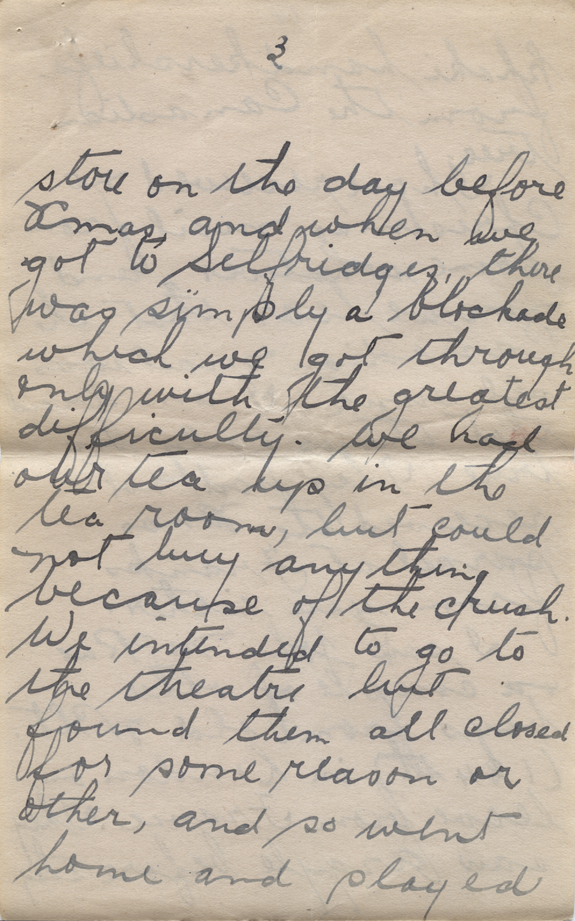 3
store on the day before
Xmas, and when we
got to Selfridges, there
was simply a blockade
which we got through
only with the greatest
difficulty. We had
our tea up in the
tea room, but could
not buy anything
because of the crush.
We intended to go to
the theatre but
found them all closed
for some reason or
other, and so went
home and played